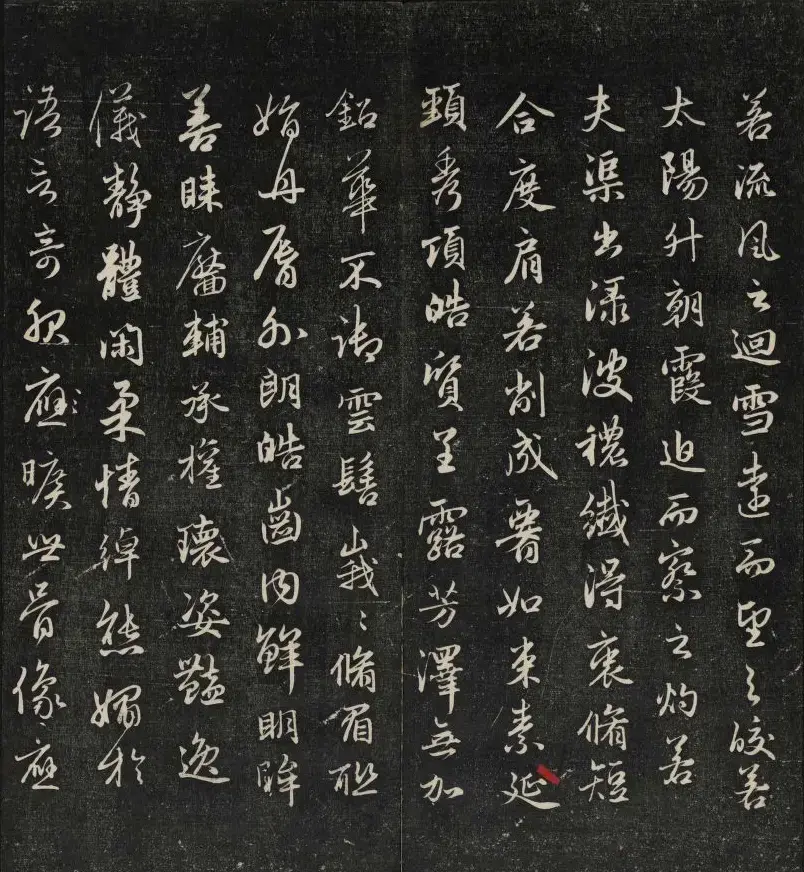 若流風之迴雪遠而望之皎若
太陽升朝霞迫而察之灼若
夫渠出渌波穠纖得衷脩短
合度肩若削成署如束素延
頸秀項皓質呈露芳澤無加
鉛華不御雲髻峩〻脩眉聅
娟丹脣外朗皓齒内鮮明眸
善睞靨輔承權瓌姿豔逸
儀靜體閑柔情綽態媚於
語言奇服應〻曠世骨像應